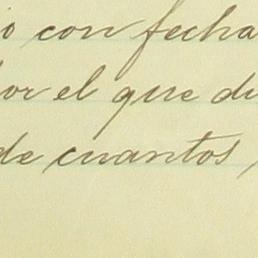 io con fecha
por el que di
de cuantos